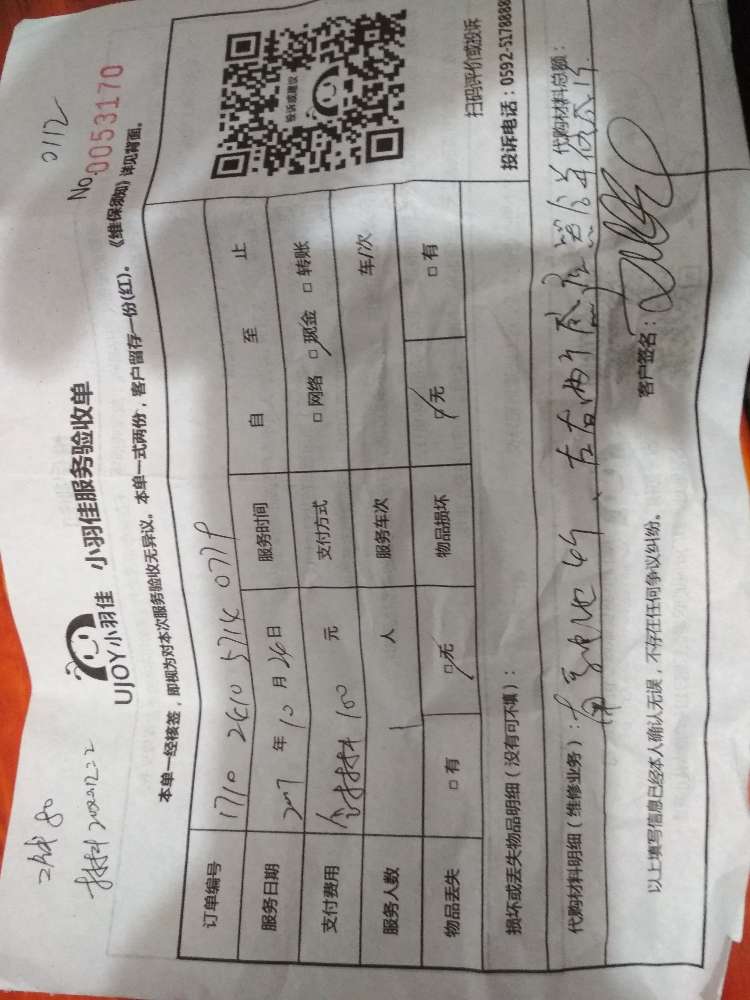 工时 80
0112
材料
No.0053170
UJOY小羽佳 小羽佳服务验收单
本单一经核签，即视为对本次服务验收无异议。本单一式两份，客户留存一份(红)。《维保须知》详见背面。
订单编号 1710 2410 5714
服务日期 2017 年 10 月 24 日 服务时间 自 至 止
支付费用 含材料 100 元 支付方式 □ 网络 □ 现金 □ 转账
服务人数 人 服务车次 车/次
物品丢失 □ 有 □ 无 物品损坏 □ 无 □ 有
投诉或建议
扫码评价或投诉
投诉电话：0592-5178888
损坏或丢失物品明细（没有可不填）：
代购材料明细（维修业务）： 代购材料总额：
左右两个
以上填写信息已经本人确认无误，不存在任何争议纠纷。 客户签名：